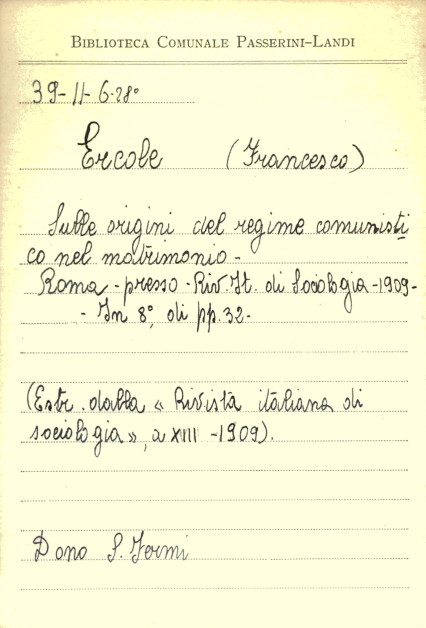 BIBLIOTECA COMUNALE PASSERINI-LANDI
39-11-6.28°
Ercole (Francesco)
Sulle origini del regime comunisti
co nel matrimonio -
Roma - presso - Riv. It. di Sociologia - 1909 -
- In 8°, di pp. 32 -
(Estr. dalla « Rivista italiana di
sociologia », a XIII - 1909).
Dono S. Fermi